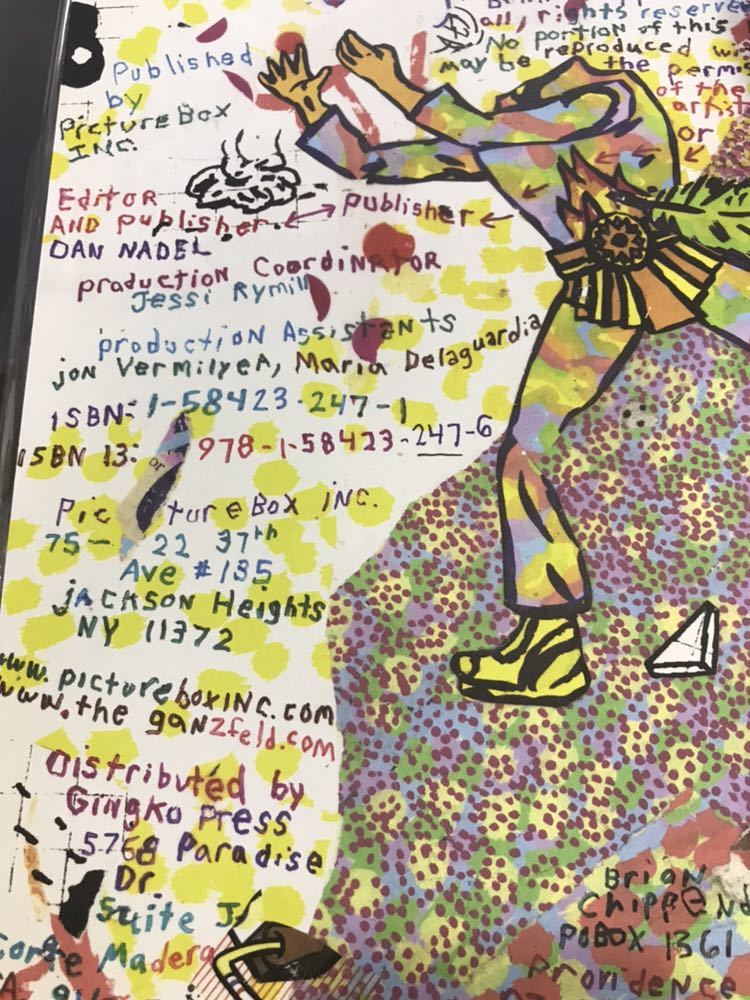 all, rights reserved
No portion of this
may be reproduced
the
of the
artist
or
Published
by
PictureBox
INC.
Editor
AND Publisher ↔ publisher ←
DAN NADEL
production CoordiNATOR
Jessi Rymill
production Assistants
jon VermilyeA, Maria Delaguardia
ISBN- 1-58423-247-1
ISBN 13: or 978-1-58423-247-6
PictureBox iNC.
75-22 37th
Ave #135
JACKSON Heights
NY 11372
www.pictureboxINC.com
www.the ganzfeld.com
Distributed by
GiNgKo Press
5768 Paradise
Dr
Suite J,
Corte Madera
Brian
Chippen
POBOX 1361
Providence